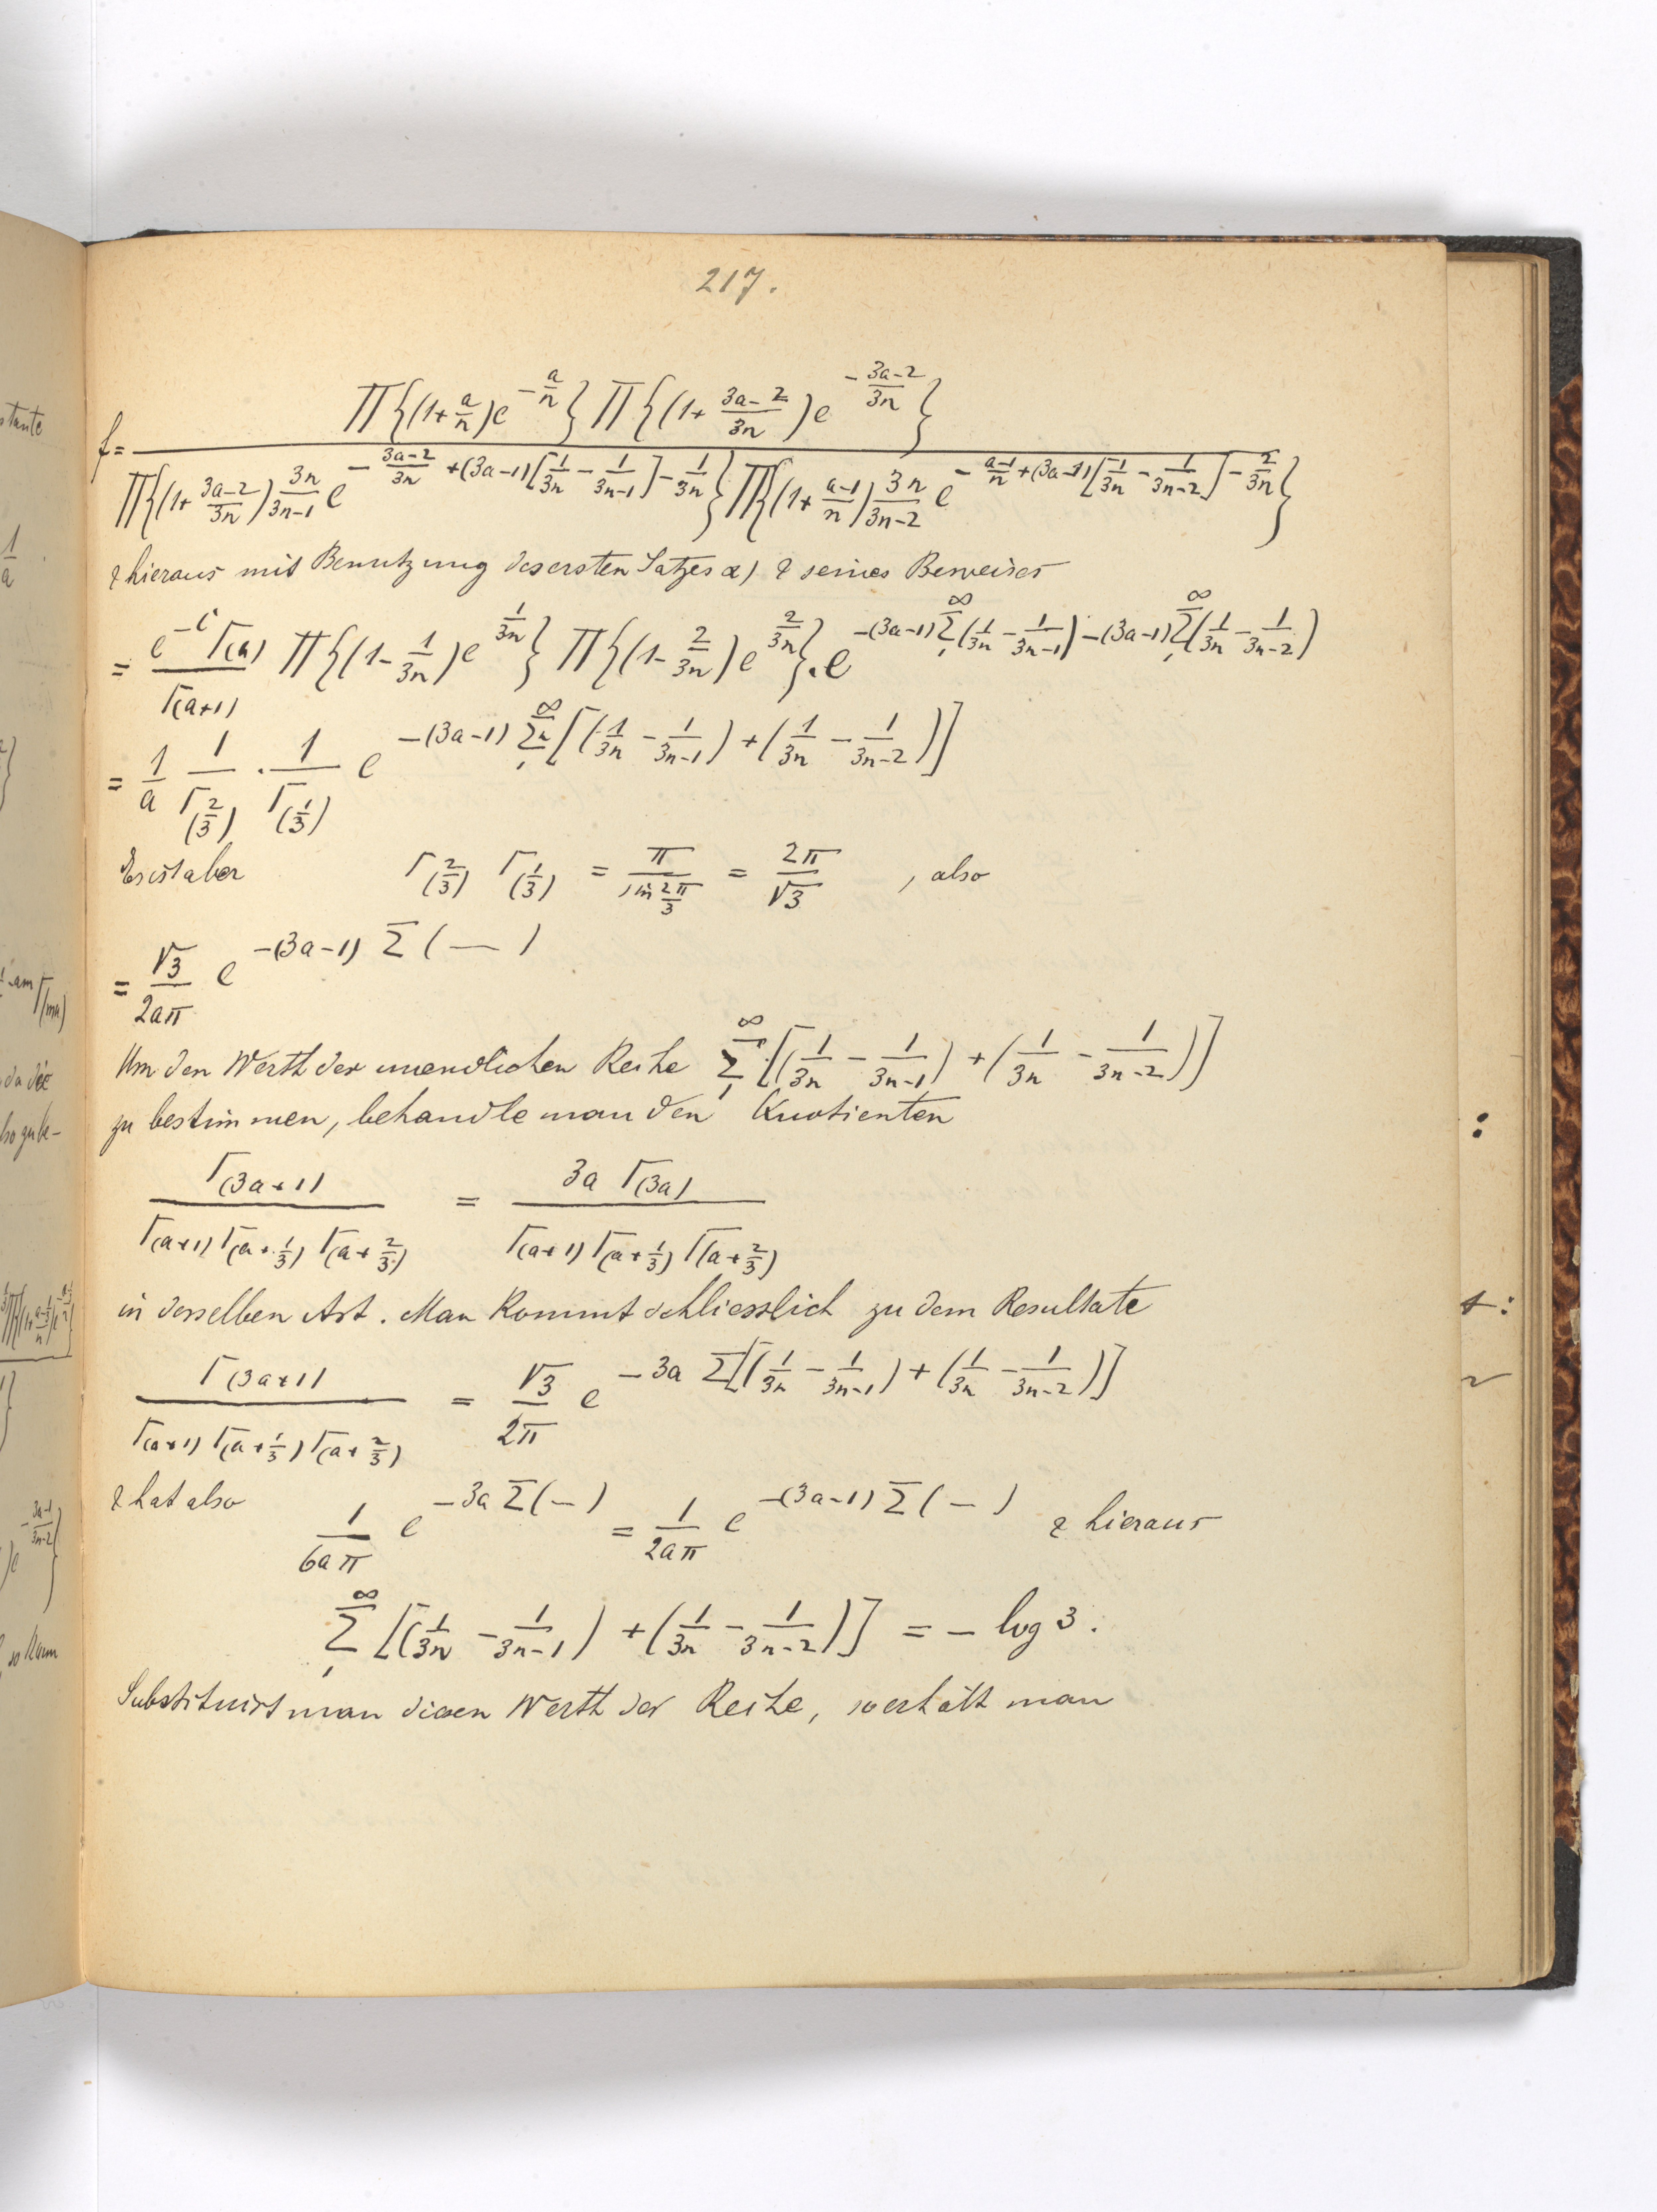 217.
f = \frac{∏{(1+\frac{a}{n})e^{-\frac{a}{n}}} ∏{(1+\frac{3a-2}{3n})e^{-\frac{3a-2}{3n}}}}{∏{(1+\frac{3a-2}{3n})\frac{3n}{3n-1}e^{-\frac{3a-2}{3n}+(3a-1)[\frac{1}{3n}-\frac{1}{3n-1}]-\frac{1}{3n}}} ∏{(1+\frac{a-1}{n})\frac{3n}{3n-2}e^{-\frac{a-1}{n}+(3a-1)[\frac{1}{3n}-\frac{1}{3n-2}]-\frac{2}{3n}}}}
& hieraus mit Benutzung des ersten Satzes α) & seines Beweises
= \frac{e^{-C}Γ(a)}{Γ(a+1)} ∏{(1-\frac{1}{3n})e^{\frac{1}{3n}}} ∏{(1-\frac{2}{3n})e^{\frac{2}{3n}}}.e^{-(3a-1)\sum_1^∞(\frac{1}{3n}-\frac{1}{3n-1})-(3a-1)\sum_1^∞(\frac{1}{3n}-\frac{1}{3n-2})}
= \frac{1}{a} \frac{1}{Γ(\frac{2}{3})} . \frac{1}{Γ(\frac{1}{3})} e^{-(3a-1)\sum_1^∞[(\frac{1}{3n}-\frac{1}{3n-1})+(\frac{1}{3n}-\frac{1}{3n-2})]}
Es ist aber Γ(\frac{2}{3}) Γ(\frac{1}{3}) = \frac{π}{sin\frac{2π}{3}} = \frac{2π}{√3} , also
= \frac{√3}{2aπ} e^{-(3a-1) Σ(—)}
Um den Werth der unendlichen Reihe \sum_1^∞ [(\frac{1}{3n}-\frac{1}{3n-1})+(\frac{1}{3n}-\frac{1}{3n-2})]
zu bestimmen, behandle man den Kuotienten
\frac{Γ(3a+1)}{Γ(a+1)Γ(a+\frac{1}{3})Γ(a+\frac{2}{3})} = \frac{3a Γ(3a)}{Γ(a+1)Γ(a+\frac{1}{3})Γ(a+\frac{2}{3})}
in derselben Art. Man kommt schliesslich zu dem Resultate
\frac{Γ(3a+1)}{Γ(a+1)Γ(a+\frac{1}{3})Γ(a+\frac{2}{3})} = \frac{√3}{2π} e^{-3a Σ[(\frac{1}{3n}-\frac{1}{3n-1})+(\frac{1}{3n}-\frac{1}{3n-2})]}
& hat also \frac{1}{6aπ} e^{-3a Σ(—)} = \frac{1}{2aπ} e^{-(3a-1) Σ(—)} & hieraus
\sum_1^∞ [(\frac{1}{3n}-\frac{1}{3n-1})+(\frac{1}{3n}-\frac{1}{3n-2})] = - log 3.
Substituirt man diesen Werth der Reihe, so erhält man